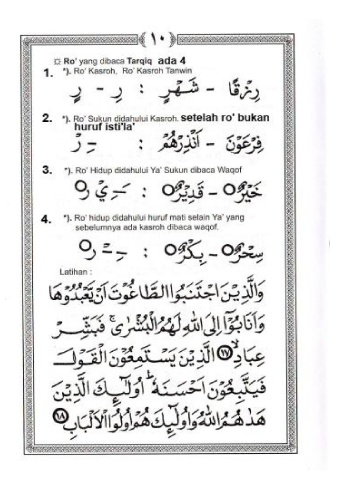 ١٠
Ro' yang dibaca Tarqiq ada 4
1. *). Ro' Kasroh, Ro' Kasroh Tanwin
رِزْقًا - شَهْرٍ : رِ - رٍ
2. *). Ro' Sukun didahului Kasroh. setelah ro' bukan
huruf isti'la'
فِرْعَوْنَ - اَنْذِرْهُمْ : ـِ رْ
3. *). Ro' Hidup didahului Ya' Sukun dibaca Waqof
خَيْرٌ - قَدِيْرٌ : ـَ يْ ر
4. *). Ro' hidup didahului huruf mati selain Ya' yang
sebelumnya ada kasroh dibaca waqof.
سِحْرٌ - بِكْرٌ : ـِ ـْ ر
Latihan :
وَالَّذِيْنَ اجْتَنَبُوا الطَّاغُوْتَ اَنْ يَّعْبُدُوْهَا
وَاَنَابُوْٓا اِلَى اللّٰهِ لَهُمُ الْبُشْرٰىۚ فَبَشِّرْ
عِبَادِۙ ١٧ الَّذِيْنَ يَسْتَمِعُوْنَ الْقَوْلَ
فَيَتَّبِعُوْنَ اَحْسَنَهٗۗ اُولٰٓئِكَ الَّذِيْنَ
هَدٰىهُمُ اللّٰهُ وَاُولٰٓئِكَ هُمْ اُولُوا الْاَلْبَابِ ١٨